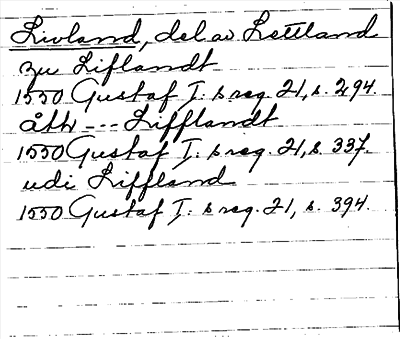 Livland, del av Lettland
zu Liflandt
1550 Gustaf I:s reg. 21, s. 294.
åth --- Lifflandt
1550 Gustaf I:s reg. 21, s. 337.
udi Liffland
1550 Gustaf I:s reg. 21, s. 394.